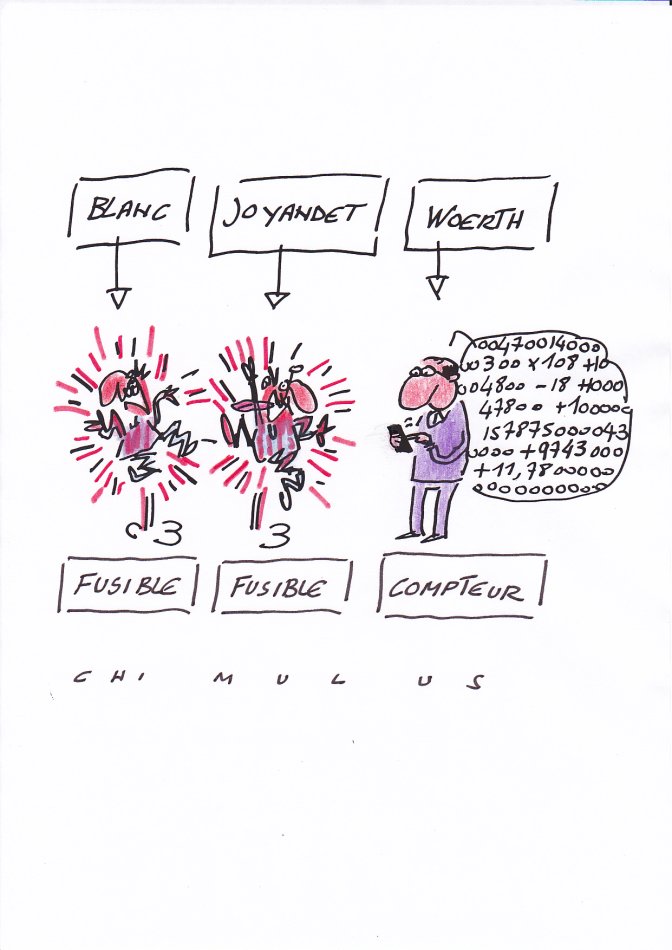 BLANC
JOYANDET
WOERTH
00470014000
00300 x 108 +10
004800 - 18 +1000
47800 +100000
157875000043
0000 + 9743000
+ 11,7800000
0000000000
FUSIBLE
FUSIBLE
COMPTEUR
CHIMULUS